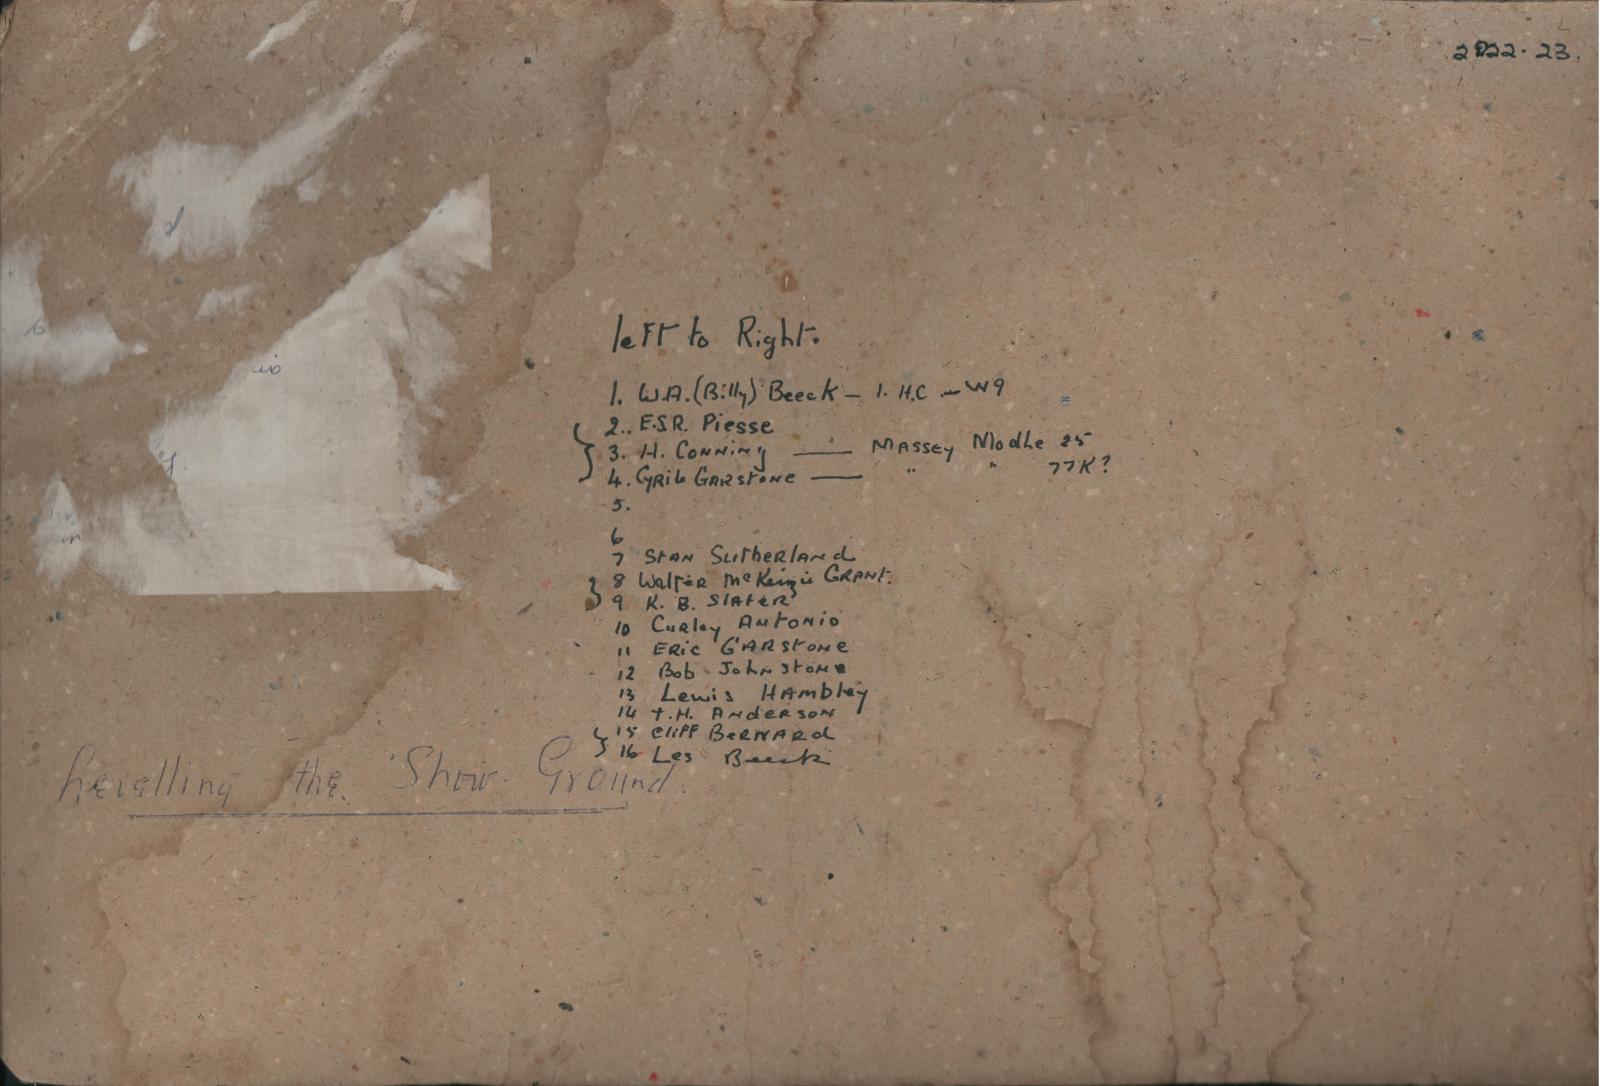 2022.23.
left to Right.
1. W.A.(Billy) Beeck – I.H.C – W9
2.. E.S.R. Piesse
3. H. Conning — Massey Modle 25
4. Cyril Garstone — " " 77K?
5.
6
7 Stan Sutherland
8 Walter McKenzie Grant.
9 K. B. Slater
10 Curley Antonio
11 Eric Garstone
12 Bob Johnstone
13 Lewis Hambley
14 T.H. Anderson
15 Cliff Bernard
16 Les Beeck
Levelling the Show Ground.